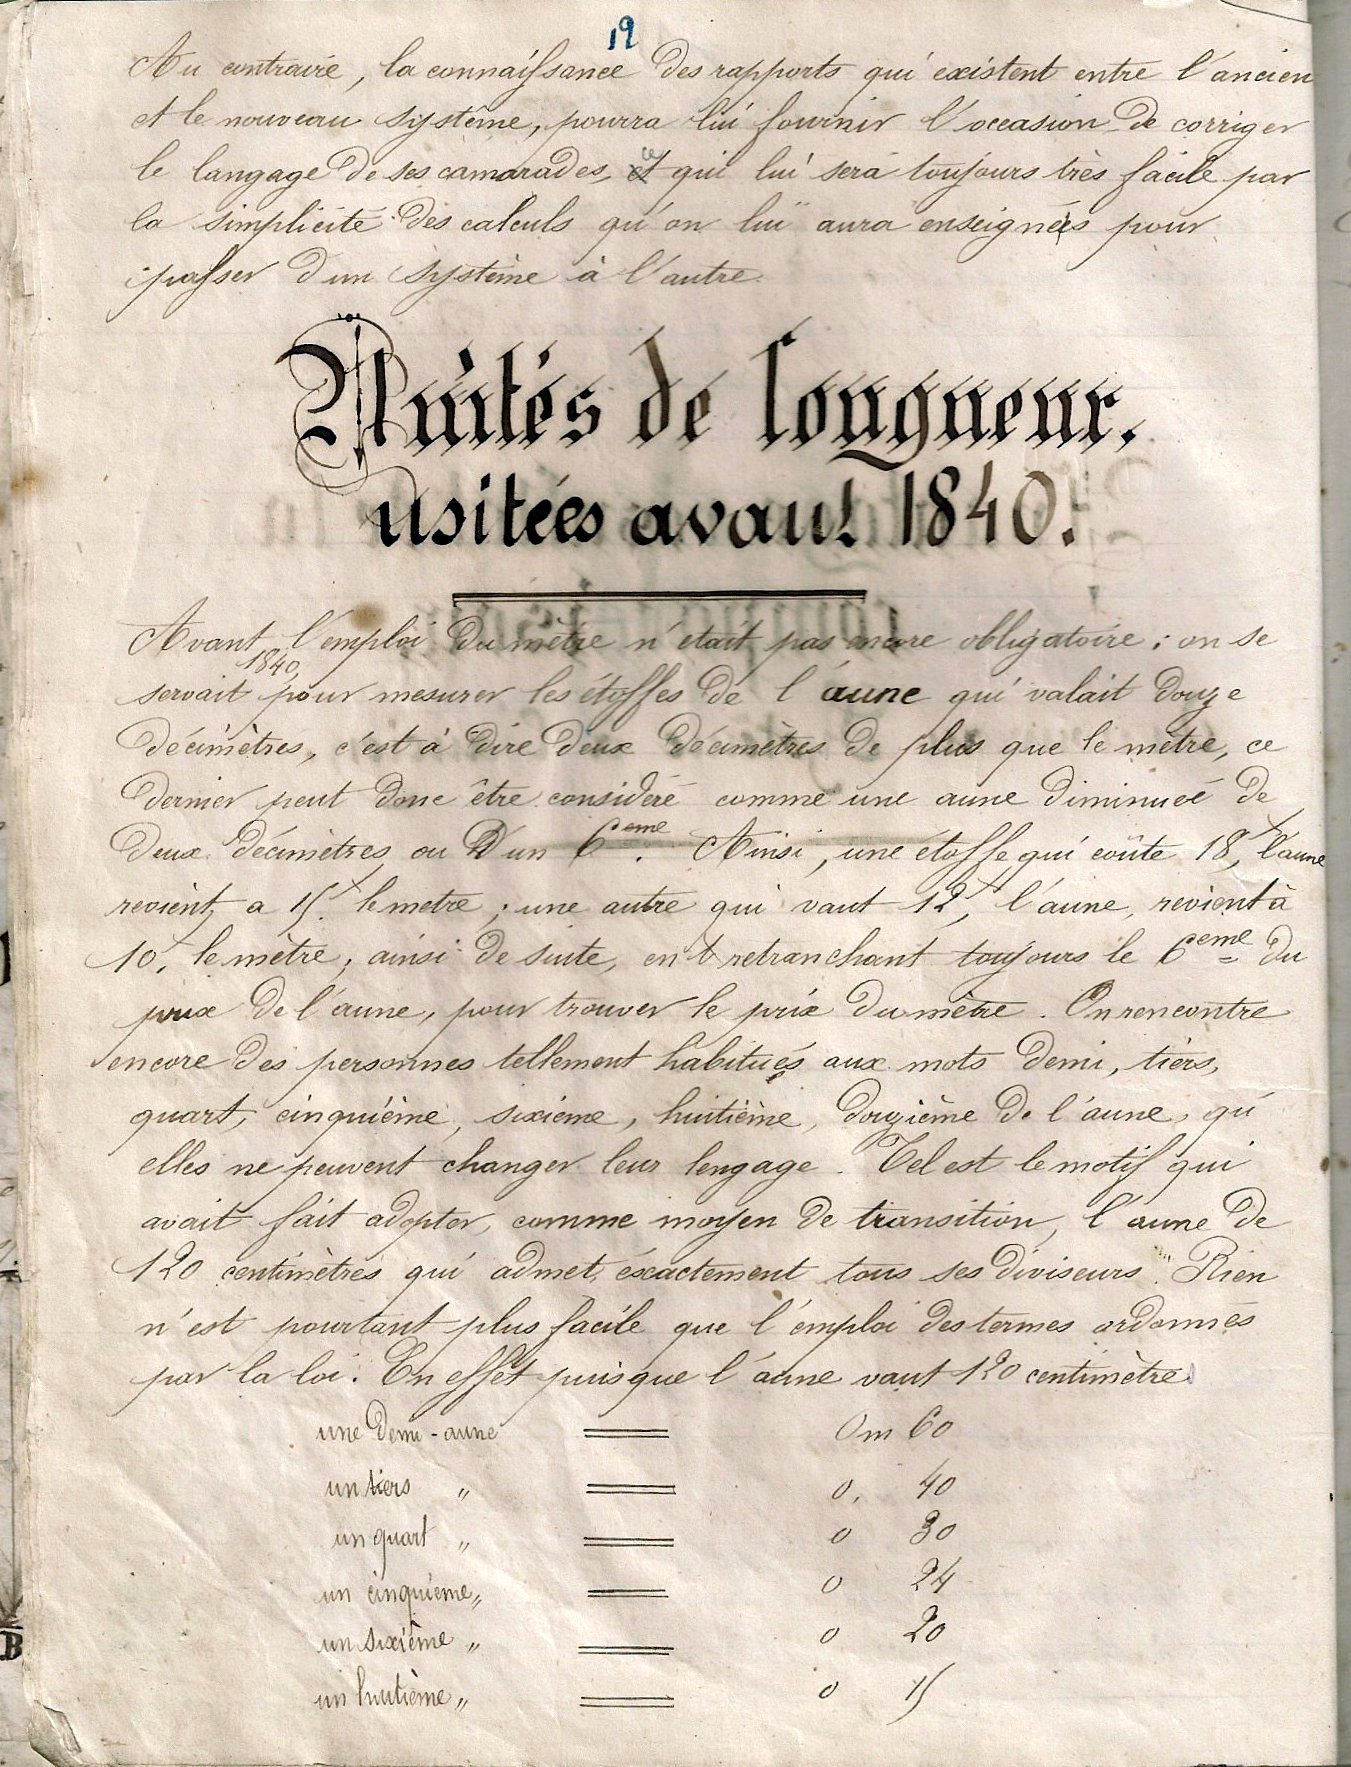 19
Au contraire, la connaissance des rapports qui existent entre l'ancien
et le nouveau système, pourra lui fournir l'occasion de corriger
le langage de ses camarades, ce qui lui sera toujours très facile par
la simplicité des calculs qu'on lui aura enseignés pour
passer d'un système à l'autre.
Unités de longueur.
usitées avant 1840.
Avant 1840, l'emploi du mètre n'était pas encore obligatoire : on se
servait pour mesurer les étoffes de l'aune qui valait douze
décimètres, c'est à dire deux décimètres de plus que le mètre, ce
dernier peut donc être considéré comme une aune diminuée de
deux décimètres ou d'un 6eme. Ainsi, une étoffe qui coûte 18f, l'aune
revient, a 15f. le metre ; une autre qui vaut 12f, l'aune, revient à
10f, le mètre ; ainsi de suite, en retranchant toujours le 6eme du
prix de l'aune, pour trouver le prix du mètre. On rencontre
encore des personnes tellement habitués aux mots demi, tiers,
quart, cinquième, sixieme, huitième, douzième de l'aune, qu'
elles ne peuvent changer leur lengage. Tel est le motif qui
avait fait adopter, comme moyen de transition, l'aune de
120 centimètres qui admet, éxactement tous ses diviseurs. Rien
n'est pourtant plus facile que l'emploi des termes ordonnés
par la loi. En effet puisque l'aune vaut 120 centimètres
une demi-aune = 0m 60
un tiers " = 0, 40
un quart " = 0 30
un cinquième " = 0 24
un sixième " = 0 20
un huitième " = 0 15
B